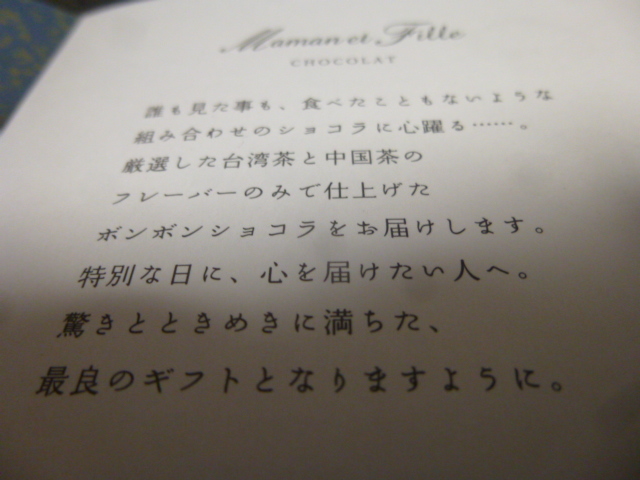 Maman et Fille
CHOCOLAT
誰も見た事も、食べたこともないような
組み合わせのショコラに心躍る……。
厳選した台湾茶と中国茶の
フレーバーのみで仕上げた
ボンボンショコラをお届けします。
特別な日に、心を届けたい人へ。
驚きとときめきに満ちた、
最良のギフトとなりますように。